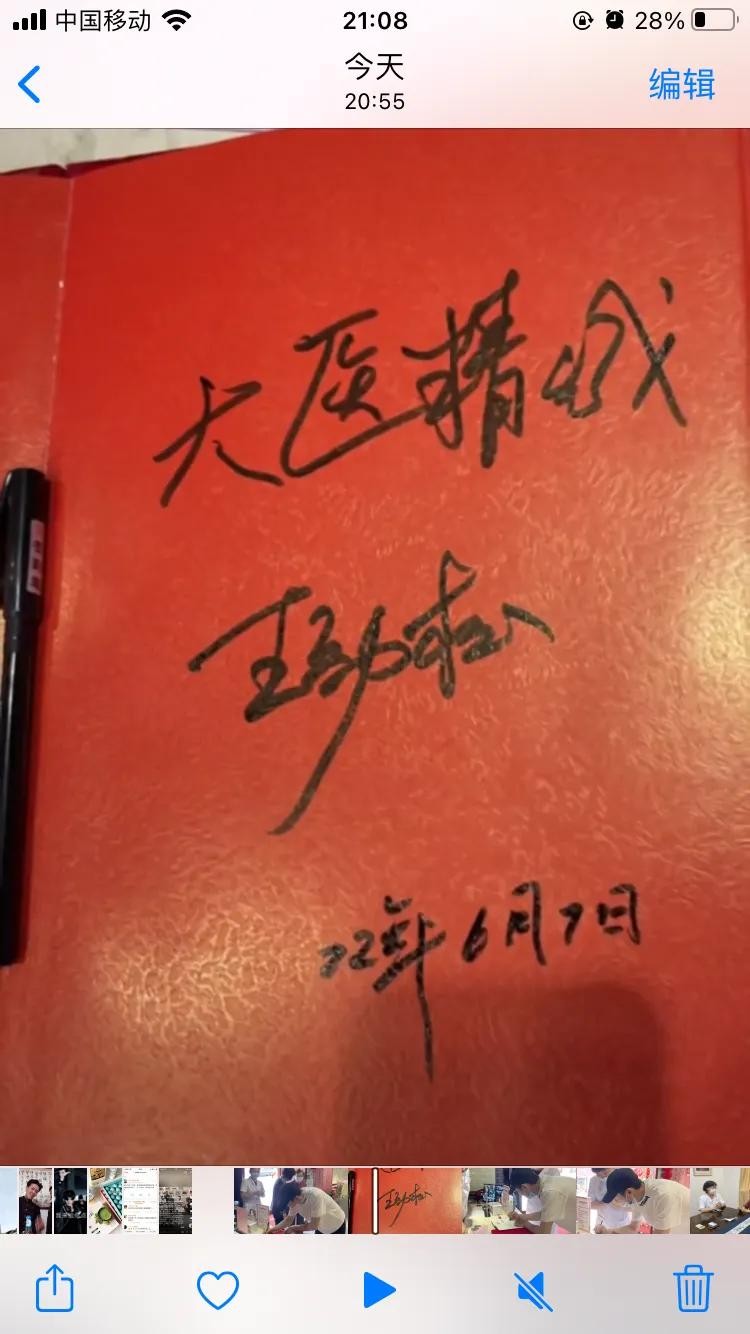 中国移动 21:08 28%
今天
20:55
编辑
大医精诚
王劲松
22年6月7日